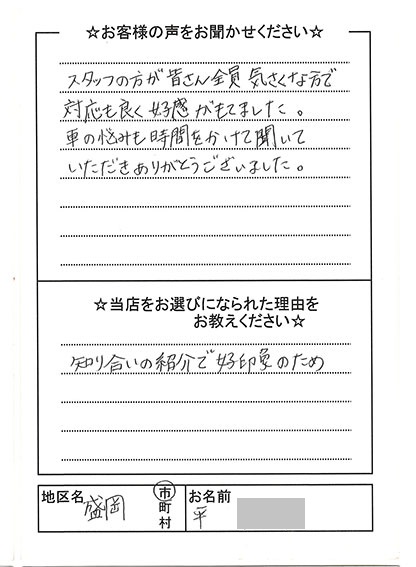 ☆お客様の声をお聞かせください☆
スタッフの方が皆さん全員 気さくな方で
対応も良く 好感がもてました。
車の悩みも時間をかけて聞いて
いただきありがとうございました。
☆当店をお選びになられた理由を
お教えください☆
知り合いの紹介で好印象のため
地区名 盛岡 市町村
お名前 平